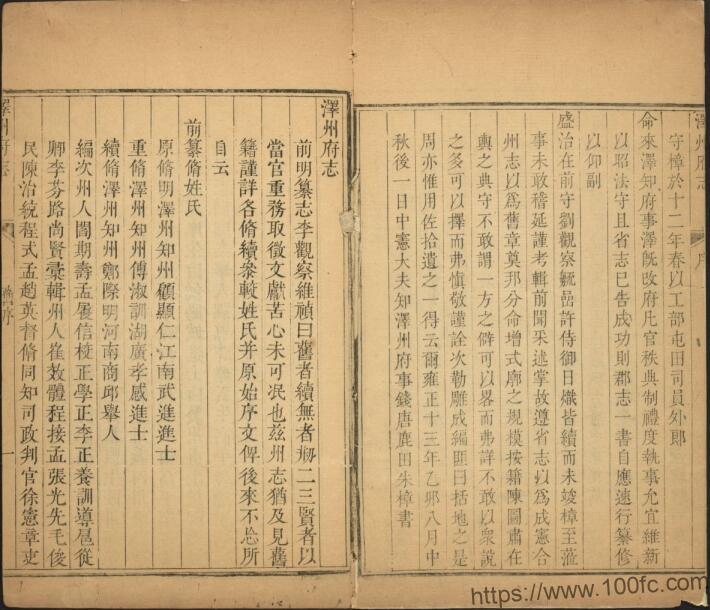 澤州府志 序
守樟於十二年春以工部屯田司員外郎
命來澤知府事澤旣改府凡官秩典制禮度執事允宜維新
以昭法守且省志已告成功則郡志一書自應速行纂修
以仰副
盛治在前守劉觀察毓嵒許侍御日熾皆續而未竣樟至蒞
事未敢稽延謹考輯前聞采述掌故遵省志以爲成憲合
州志以爲舊章莫邦分命增式廓之規模按籍陳圖肅在
輿之典守不敢謂一方之僻可以畧而弗詳不敢以衆說
之多可以擇而弗愼敬謹詮次勒雕成編匪曰括地之是
周亦惟用佐拾遺之一得云爾雍正十三年乙卯八月中
秋後一日中憲大夫知澤州府事錢唐鹿田朱樟書
澤州府志
前明纂志李觀察維禎曰舊者續無者剏二三賢者以
當官重務取徵文獻苦心未可泯也茲州志猶及見舊
籍謹詳各脩續叅較姓氏并原始序文俾後來不忘所
自云
前纂脩姓氏
原脩明澤州知州顧顯仁江南武進進士
重脩澤州知州傅淑訓湖廣孝感進士
續脩澤州知州鄭際明河南商邱舉人
編次州人閻期壽孟屢信校正學正李正養訓導扈從
卿李芬路尚賢彙輯州人崔效體程接孟張光先毛俊
民陳治統程式孟趙英督脩同知司政判官徐憲章吏
澤州府志 舊序 一
https://www.100fc.com